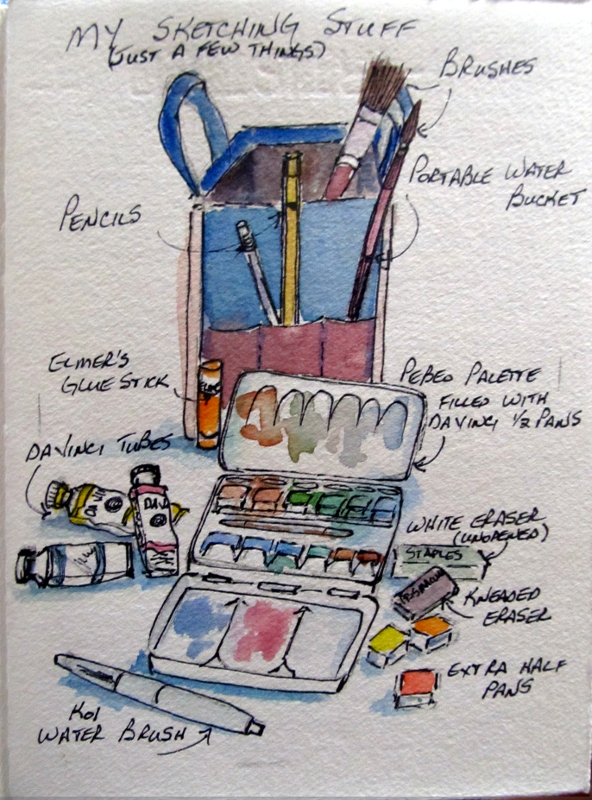 MY SKETCHING STUFF
(JUST A FEW THINGS)
BRUSHES
PORTABLE WATER
BUCKET
PENCILS
ELMER'S
GLUE STICK
PEBEO PALETTE
FILLED WITH
DAVINCI 1/2 PANS
DAVINCI TUBES
DAV
WHITE ERASER
(UNOPENED)
STAPLES
KNEADED
ERASER
EXTRA HALF
PANS
KOI
WATER BRUSH